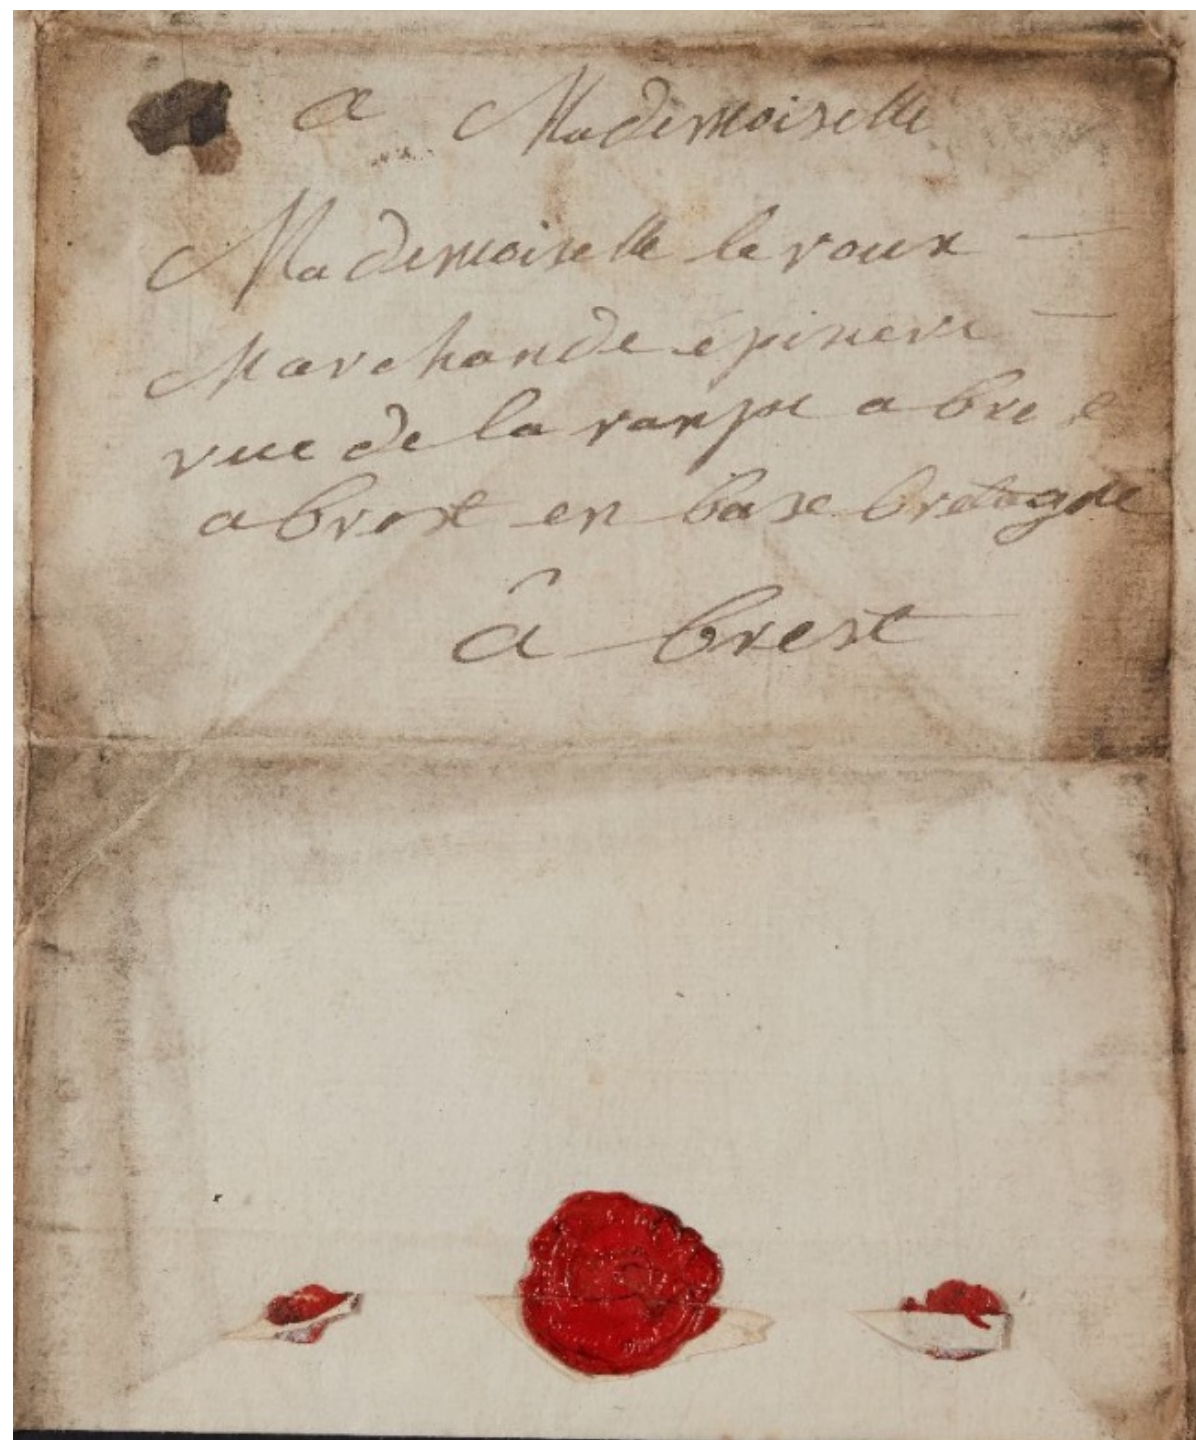 a Mademoiselle
Mademoiselle le roux
Marchande épiciere
rue de la rampe a bre
a brest en base bretagne
â brest